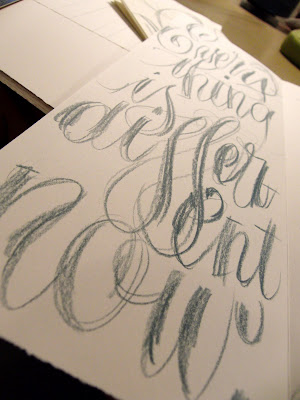 Every
thing
is
differ
ent
now